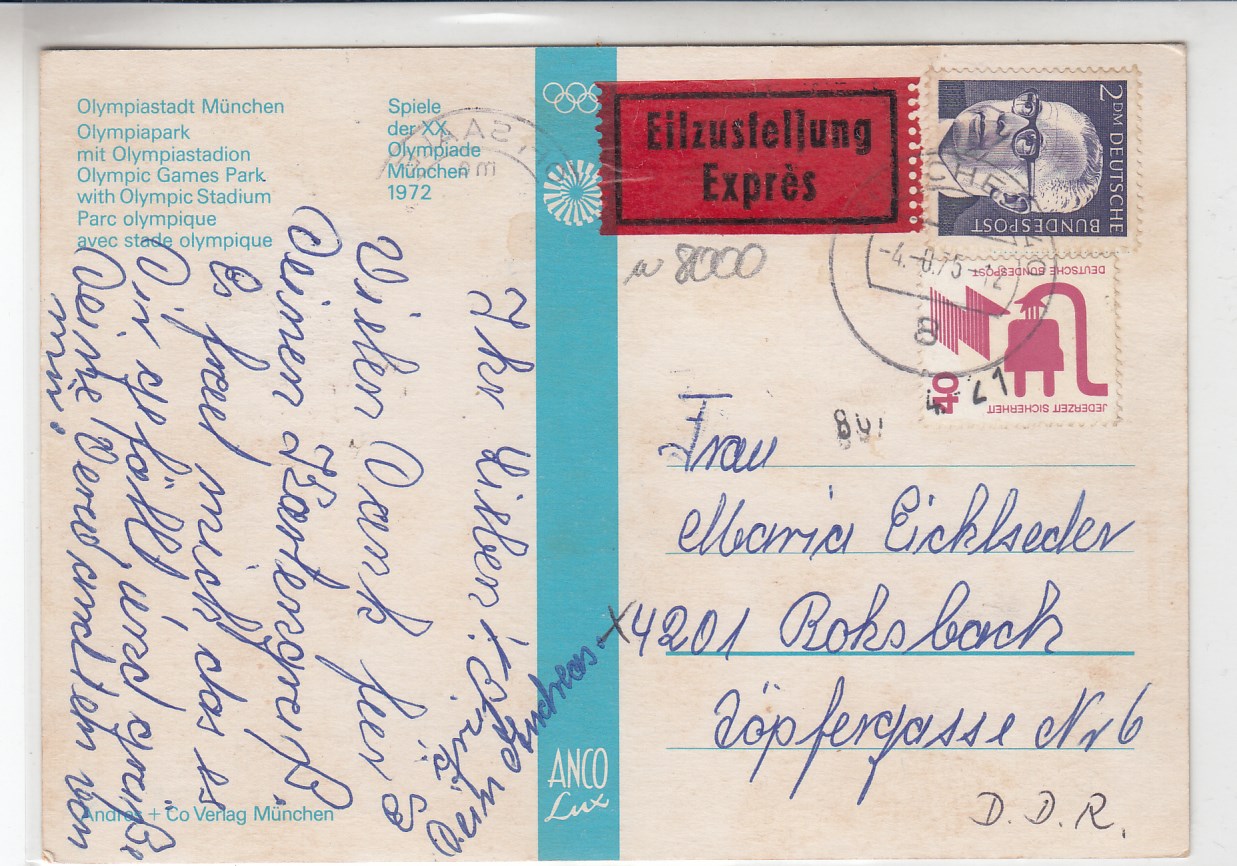 Olympiastadt München
Olympiapark
mit Olympiastadion
Olympic Games Park
with Olympic Stadium
Parc olympique
avec stade olympique
Spiele
der XX.
Olympiade
München
1972
Eilzustellung
Exprès
2 DM DEUTSCHE
BUNDESPOST
DEUTSCHE BUNDESPOST
40
JEDERZEIT SICHERHEIT
-4.-8.75
8
8000
Ihr Lieben!
Vielen Dank fier
Deinen Kartengruß.
Es freut mich das es
Dir gefällt, und grüße
Deine Verwandten von
mir.
Andreas
Frau
Maria Eicklseder
4201 Roksbach
Töpfergasse Nr 6
D.D.R.
ANCO
Lux
Andres + Co Verlag München